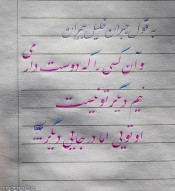 به قول جبران خلیل جبران
و آن کسی را که دوست داری می
نیم دیگر تو نیست
او تویی اما در جایی دیگر